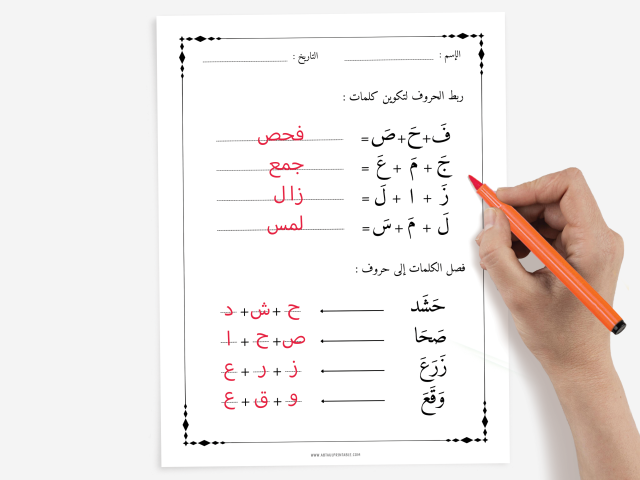 الإسم : التاريخ :
ربط الحروف لتكوين كلمات :
فَ+حَ+صَ= فحص
جَ + مَ + عَ = جمع
زَ + ا + لَ = زال
لَ + مَ + سَ = لمس
فصل الكلمات إلى حروف :
حَشَد ح + ش + د
صَحَا ص + ح + ا
زَرَعَ ز + ر + ع
وَقَعَ و + ق + ع